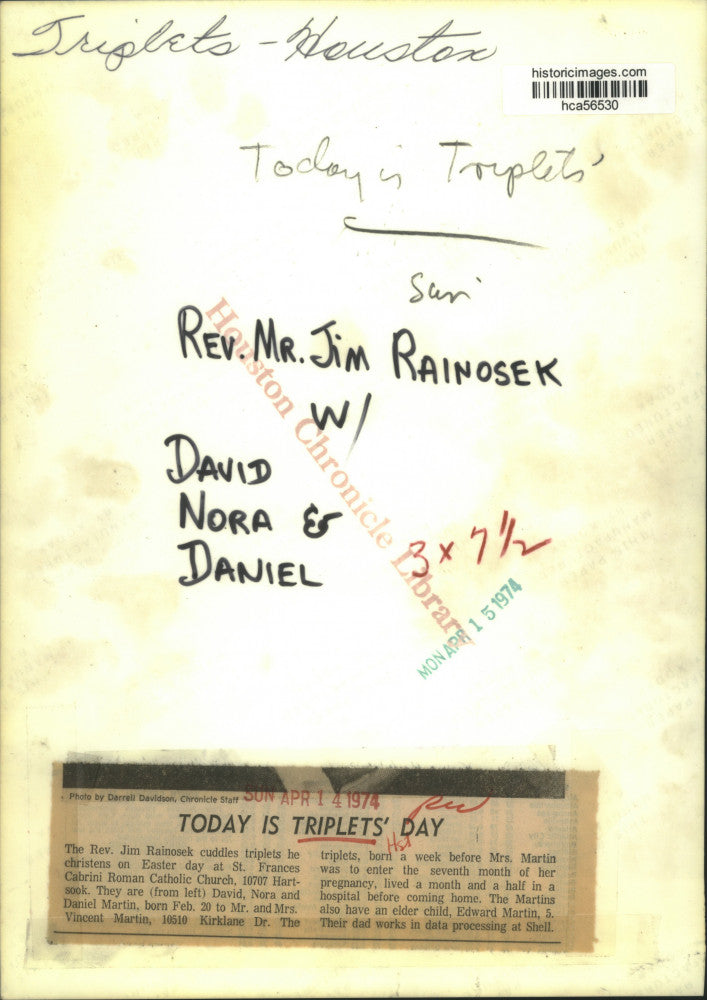 Triplets - Houston
historicimages.com
hca56530
Today is Triplets'
Sun
REV. MR. JIM RAINOSEK
W/
DAVID
NORA &
DANIEL
Houston Chronicle Library
3 x 7 1/2
MON APR 15 1974
Photo by Darrell Davidson, Chronicle Staff
SUN APR 14 1974
TODAY IS TRIPLETS' DAY
The Rev. Jim Rainosek cuddles triplets he
christens on Easter day at St. Frances
Cabrini Roman Catholic Church, 10707 Hart-
sook. They are (from left) David, Nora and
Daniel Martin, born Feb. 20 to Mr. and Mrs.
Vincent Martin, 10510 Kirklane Dr. The
triplets, born a week before Mrs. Martin
was to enter the seventh month of her
pregnancy, lived a month and a half in a
hospital before coming home. The Martins
also have an elder child, Edward Martin, 5.
Their dad works in data processing at Shell.